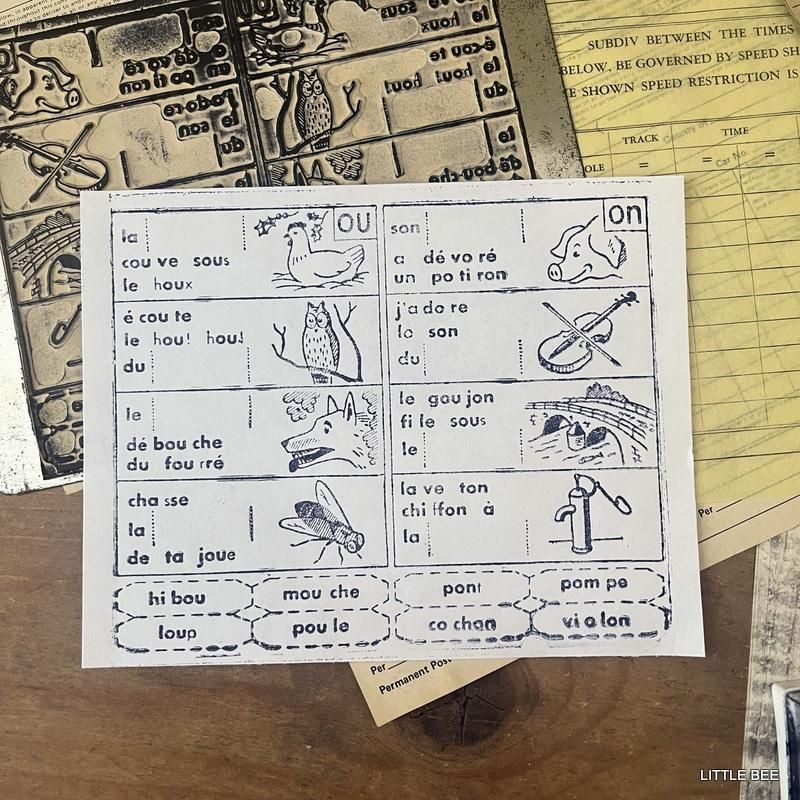 SUBDIV BETWEEN THE TIMES
BELOW, BE GOVERNED BY SPEED
SHOWN SPEED RESTRICTION IS
TRACK TIME
= = =
Car No.
ou
la
cou ve sous
le houx
é cou te
le hou! hou!
du
le
dé bou che
du fou rré
cha sse
la
de ta joue
on
son
a dé vo ré
un po ti ron
j'a do re
le son
du
le gou jon
fi le sous
le
la ve ton
chi ffon à
la
hi bou mou che pont pom pe
loup pou le co chon vi o lon
Per
Per
Permanent
LITTLE BEE